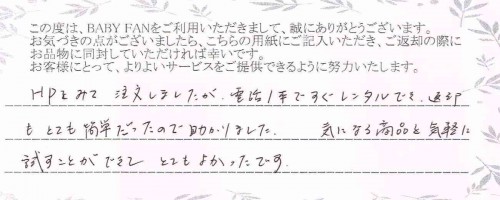 この度は、BABY FANをご利用いただきまして、誠にありがとうございます。
お気づきの点がございましたら、こちらの用紙にご記入いただき、ご返却の際に
お品物に同封していただければ幸いです。
お客様にとって、よりよいサービスをご提供できるように努力いたします。
HPをみて 注文しましたが、電話1本ですぐレンタルでき、返却
も とても 簡単だったので助かりました。 気になる商品を気軽に
試すことができて とてもよかったです。